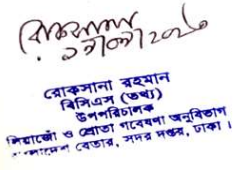 রোকসানা
রোকসানা রহমান
বিসিএস (তথ্য)
উপপরিচালক
লিয়াজোঁ ও শ্রোতা গবেষণা অনুবিভাগ
বাংলাদেশ বেতার, সদর দপ্তর, ঢাকা।